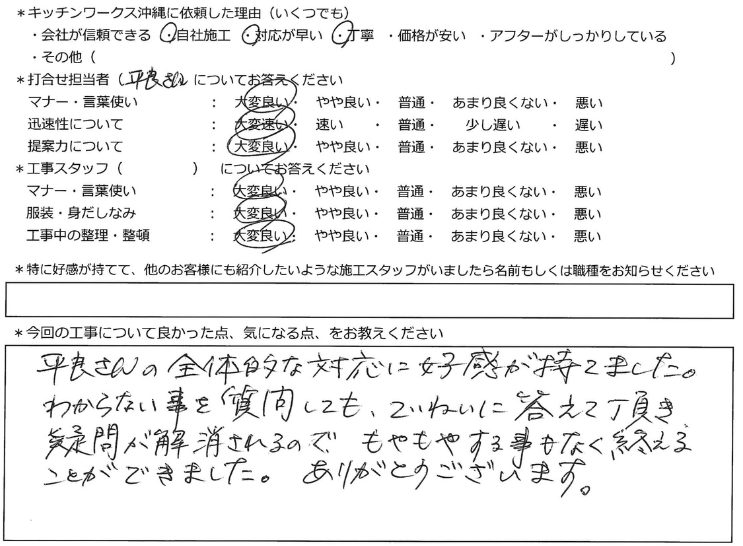 ＊キッチンワークス沖縄に依頼した理由（いくつでも）
・会社が信頼できる ・自社施工 ・対応が早い ・丁寧 ・価格が安い ・アフターがしっかりしている
・その他（ ）
＊打合せ担当者（平良さん）についてお答えください
マナー・言葉使い ： 大変良い・ やや良い・ 普通・ あまり良くない・ 悪い
迅速性について ： 大変速い・ 速い ・ 普通・ 少し遅い ・ 遅い
提案力について ： 大変良い・ やや良い・ 普通・ あまり良くない・ 悪い
＊工事スタッフ（ ） についてお答えください
マナー・言葉使い ： 大変良い・ やや良い・ 普通・ あまり良くない・ 悪い
服装・身だしなみ ： 大変良い・ やや良い・ 普通・ あまり良くない・ 悪い
工事中の整理・整頓 ： 大変良い・ やや良い・ 普通・ あまり良くない・ 悪い
＊特に好感が持てて、他のお客様にも紹介したいような施工スタッフがいましたら名前もしくは職種をお知らせください
＊今回の工事について良かった点、気になる点、をお教えください
平良さんの全体的な対応に好感が持てました。
わからない事を質問しても、ていねいに答えて頂き
疑問が解消されるので もやもやする事もなく終える
ことができました。 ありがとうございます。